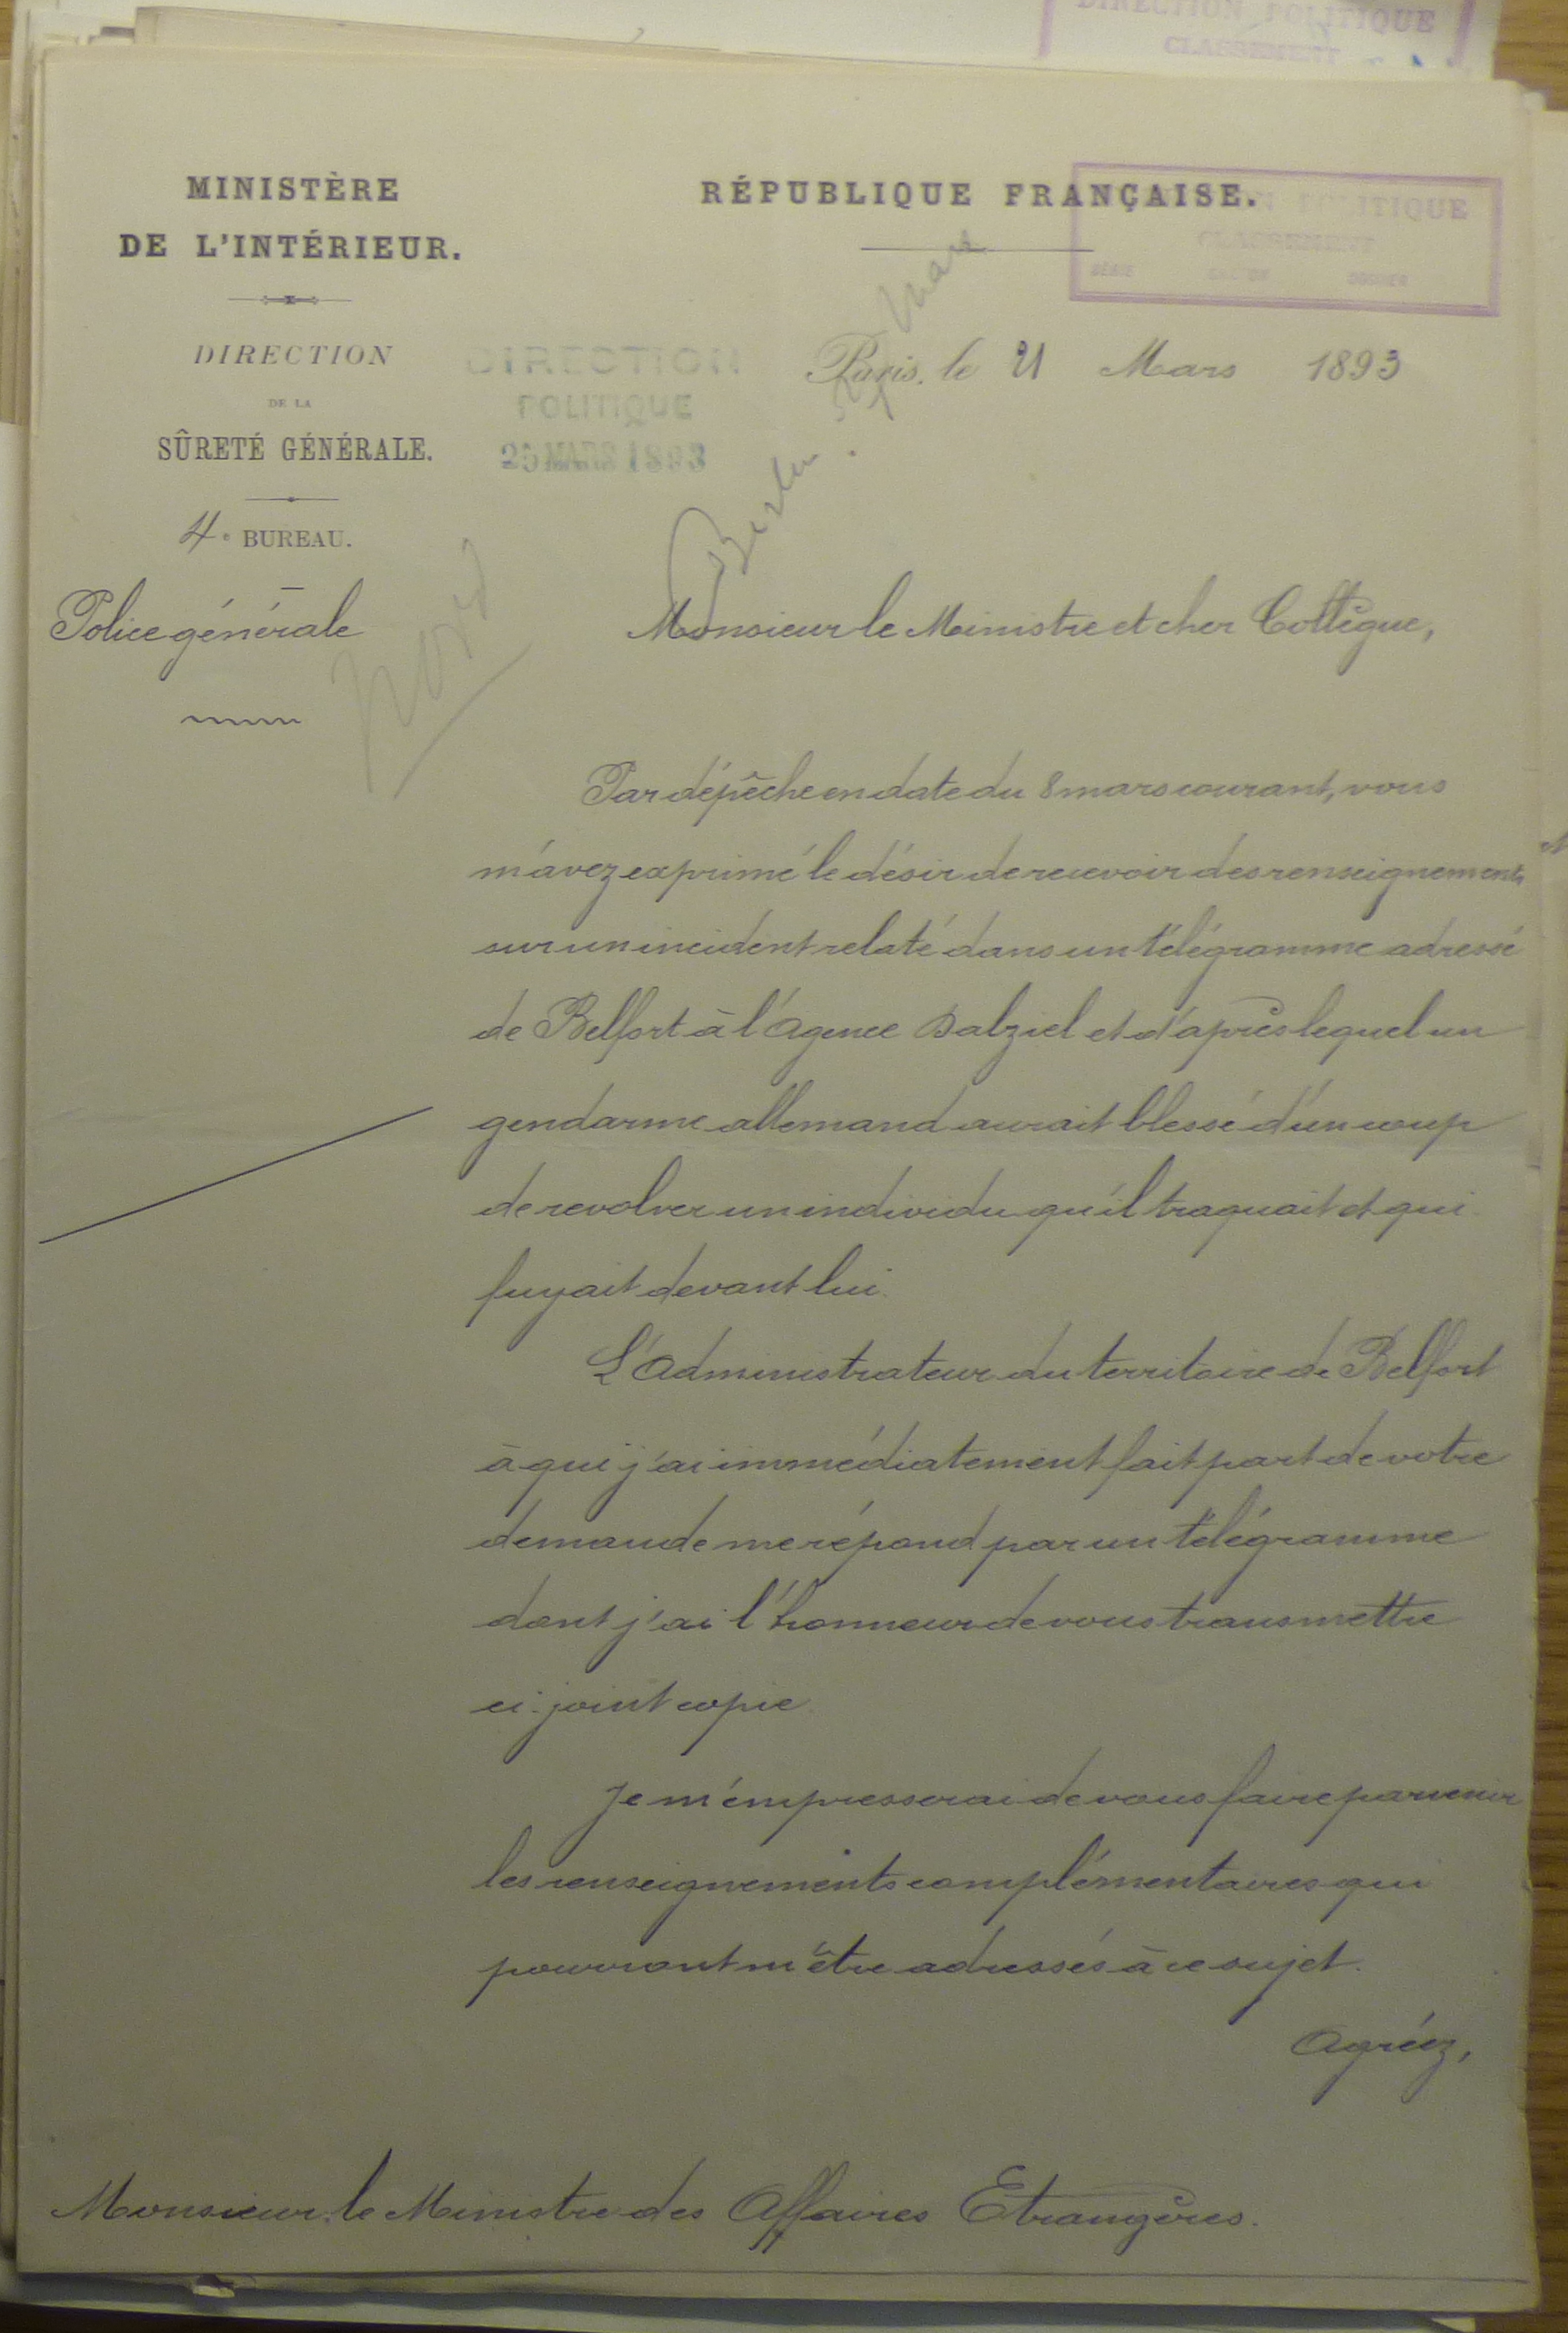 DIRECTION POLITIQUE
CLASSEMENT
MINISTÈRE
DE L'INTÉRIEUR.
DIRECTION
DE LA
SÛRETÉ GÉNÉRALE.
4e BUREAU.
Police générale
Nord
RÉPUBLIQUE FRANÇAISE.
POLITIQUE
CLASSEMENT
SÉRIE DOSSIER
DIRECTION
POLITIQUE
25 MARS 1893
Paris, le 21 Mars 1893
Berlin Mars
Monsieur le Ministre et cher Collègue,
Par dépêche en date du 8 mars courant, vous
m'avez exprimé le désir de recevoir des renseignements
sur un incident relaté dans un télégramme adressé
de Belfort à l'Agence Dalziel et d'après lequel un
gendarme allemand aurait blessé d'un coup
de revolver un individu qu'il traquait et qui
fuyait devant lui.
L'Administrateur du territoire de Belfort
à qui j'ai immédiatement fait part de votre
demande me répond par un télégramme
dont j'ai l'honneur de vous transmettre
ci-joint copie.
Je m'empresserai de vous faire parvenir
les renseignements complémentaires qui
pourront m'être adressés à ce sujet.
Agréez,
Monsieur le Ministre des Affaires Etrangères.